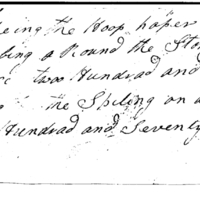 being the Hoop
bing a Round the Sto
two Hundrad and
the Spiling on a
Hundrad and Seventy